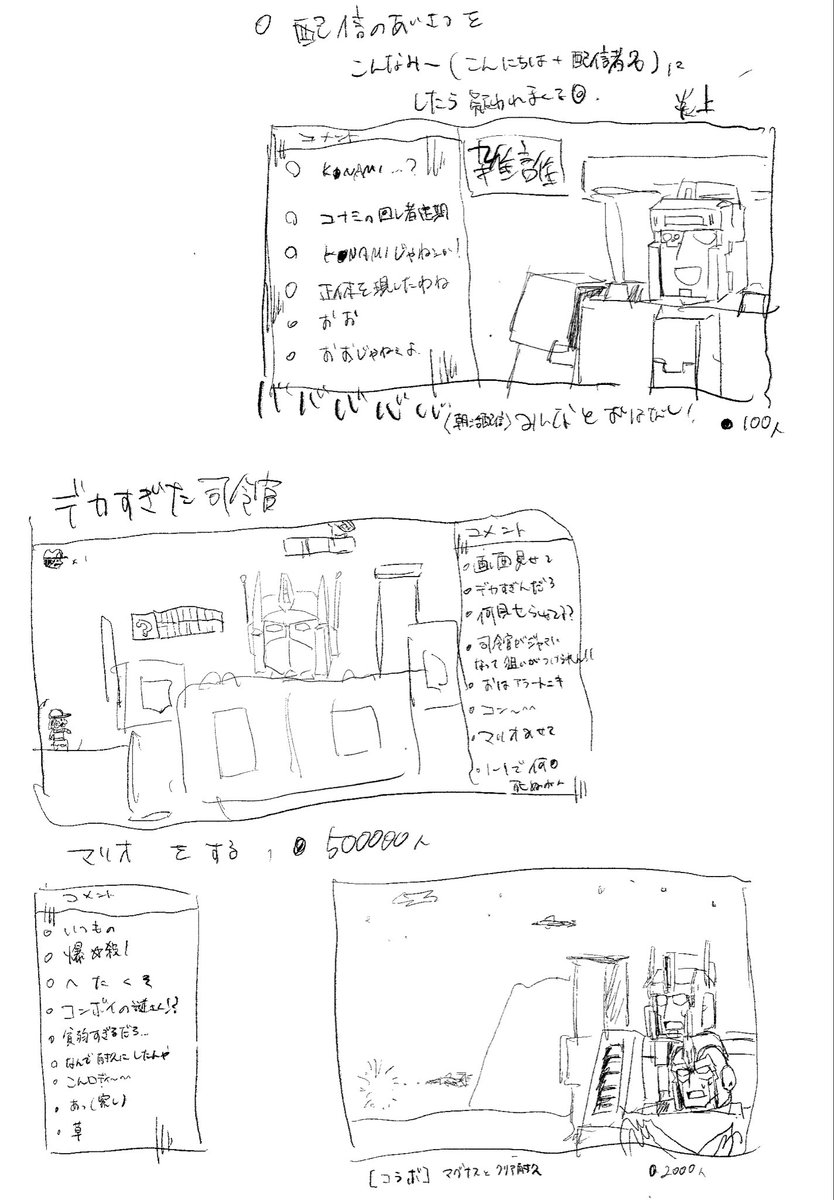 配信のあいさつを
こんなみ～(こんにちは+配信者名)に
したら疑われまくる
炎上
コメント
KONAMI…?
コナミの回し者定期
KONAMIじゃねーか!
正体を現したわね
おお
おおじゃねぇよ
雑談
ババババババ
(朝活配信)みんなとおはなし!
100人
デカすぎた司令官
×1
?
コメント
画面見せて
デカすぎんだろ
何見せられてる??
司令官がジャマに
なって狙いがつけられん!!
おはアラートニキ
コン～^^
マリオみせて
1-1で何回
死ぬねん
マリオをする,
500000人
コメント
いつもの
爆☆殺!
へたくそ
コンボイの謎さん!?
貧弱すぎるだろ…
なんで耐久にしたんや
こんロディ～～
あっ(察し)
草
[コラボ] マグナスとクリア耐久
2000人